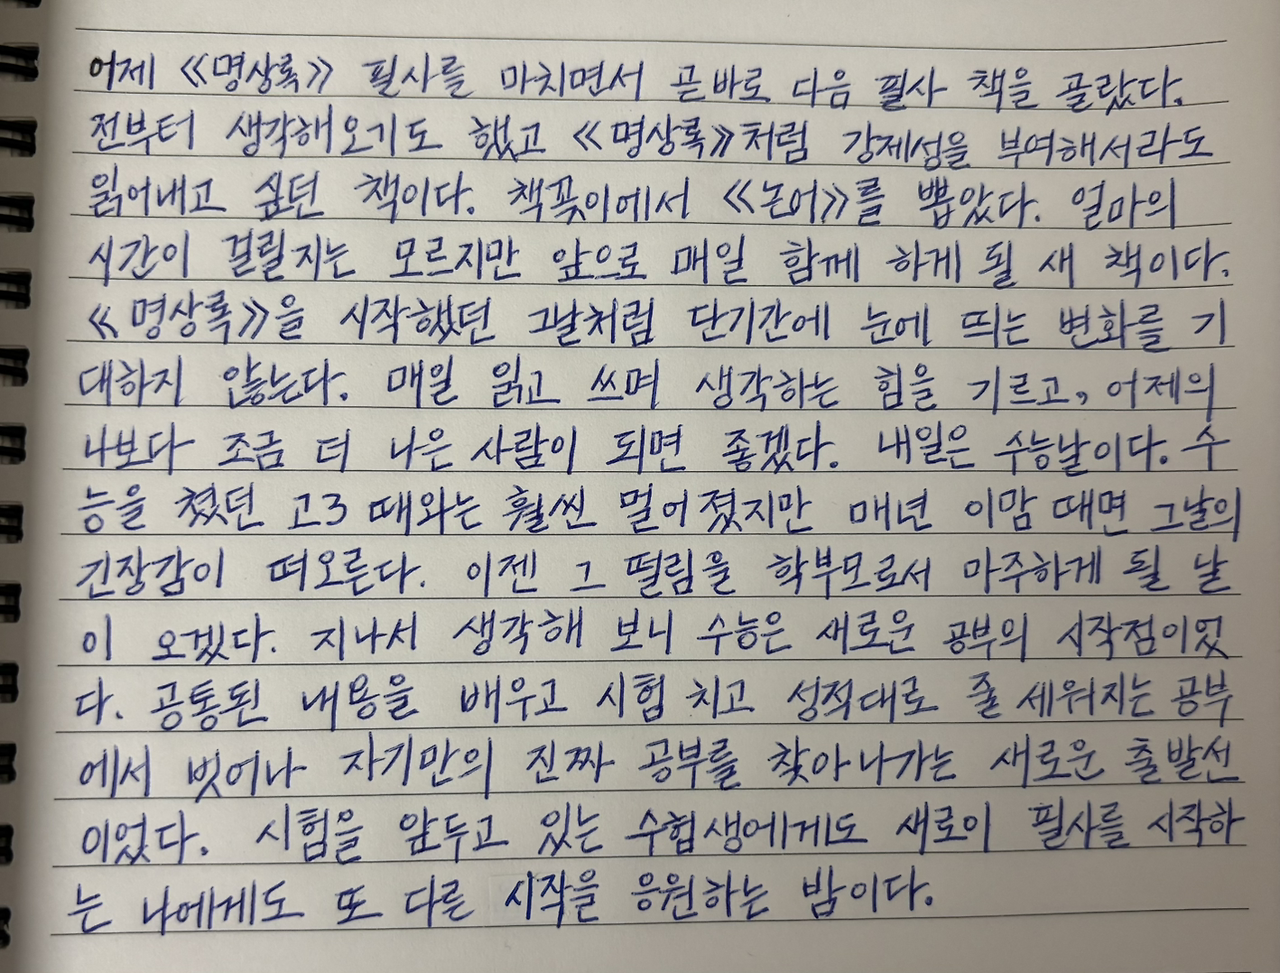 어제 《명상록》 필사를 마치면서 곧바로 다음 필사 책을 골랐다.
전부터 생각해오기도 했고 《명상록》처럼 강제성을 부여해서라도
읽어내고 싶던 책이다. 책꽂이에서 《논어》를 뽑았다. 얼마의
시간이 걸릴지는 모르지만 앞으로 매일 함께 하게 될 새 책이다.
《명상록》을 시작했던 그날처럼 단기간에 눈에 띄는 변화를 기
대하지 않는다. 매일 읽고 쓰며 생각하는 힘을 기르고, 어제의
나보다 조금 더 나은 사람이 되면 좋겠다. 내일은 수능날이다. 수
능을 쳤던 고3 때와는 훨씬 멀어졌지만 매년 이맘 때면 그날의
긴장감이 떠오른다. 이젠 그 떨림을 학부모로서 마주하게 될 날
이 오겠다. 지나서 생각해 보니 수능은 새로운 공부의 시작점이었
다. 공통된 내용을 배우고 시험 치고 성적대로 줄 세워지는 공부
에서 벗어나 자기만의 진짜 공부를 찾아나가는 새로운 출발선
이었다. 시험을 앞두고 있는 수험생에게도 새로이 필사를 시작하
는 나에게도 또 다른 시작을 응원하는 밤이다.